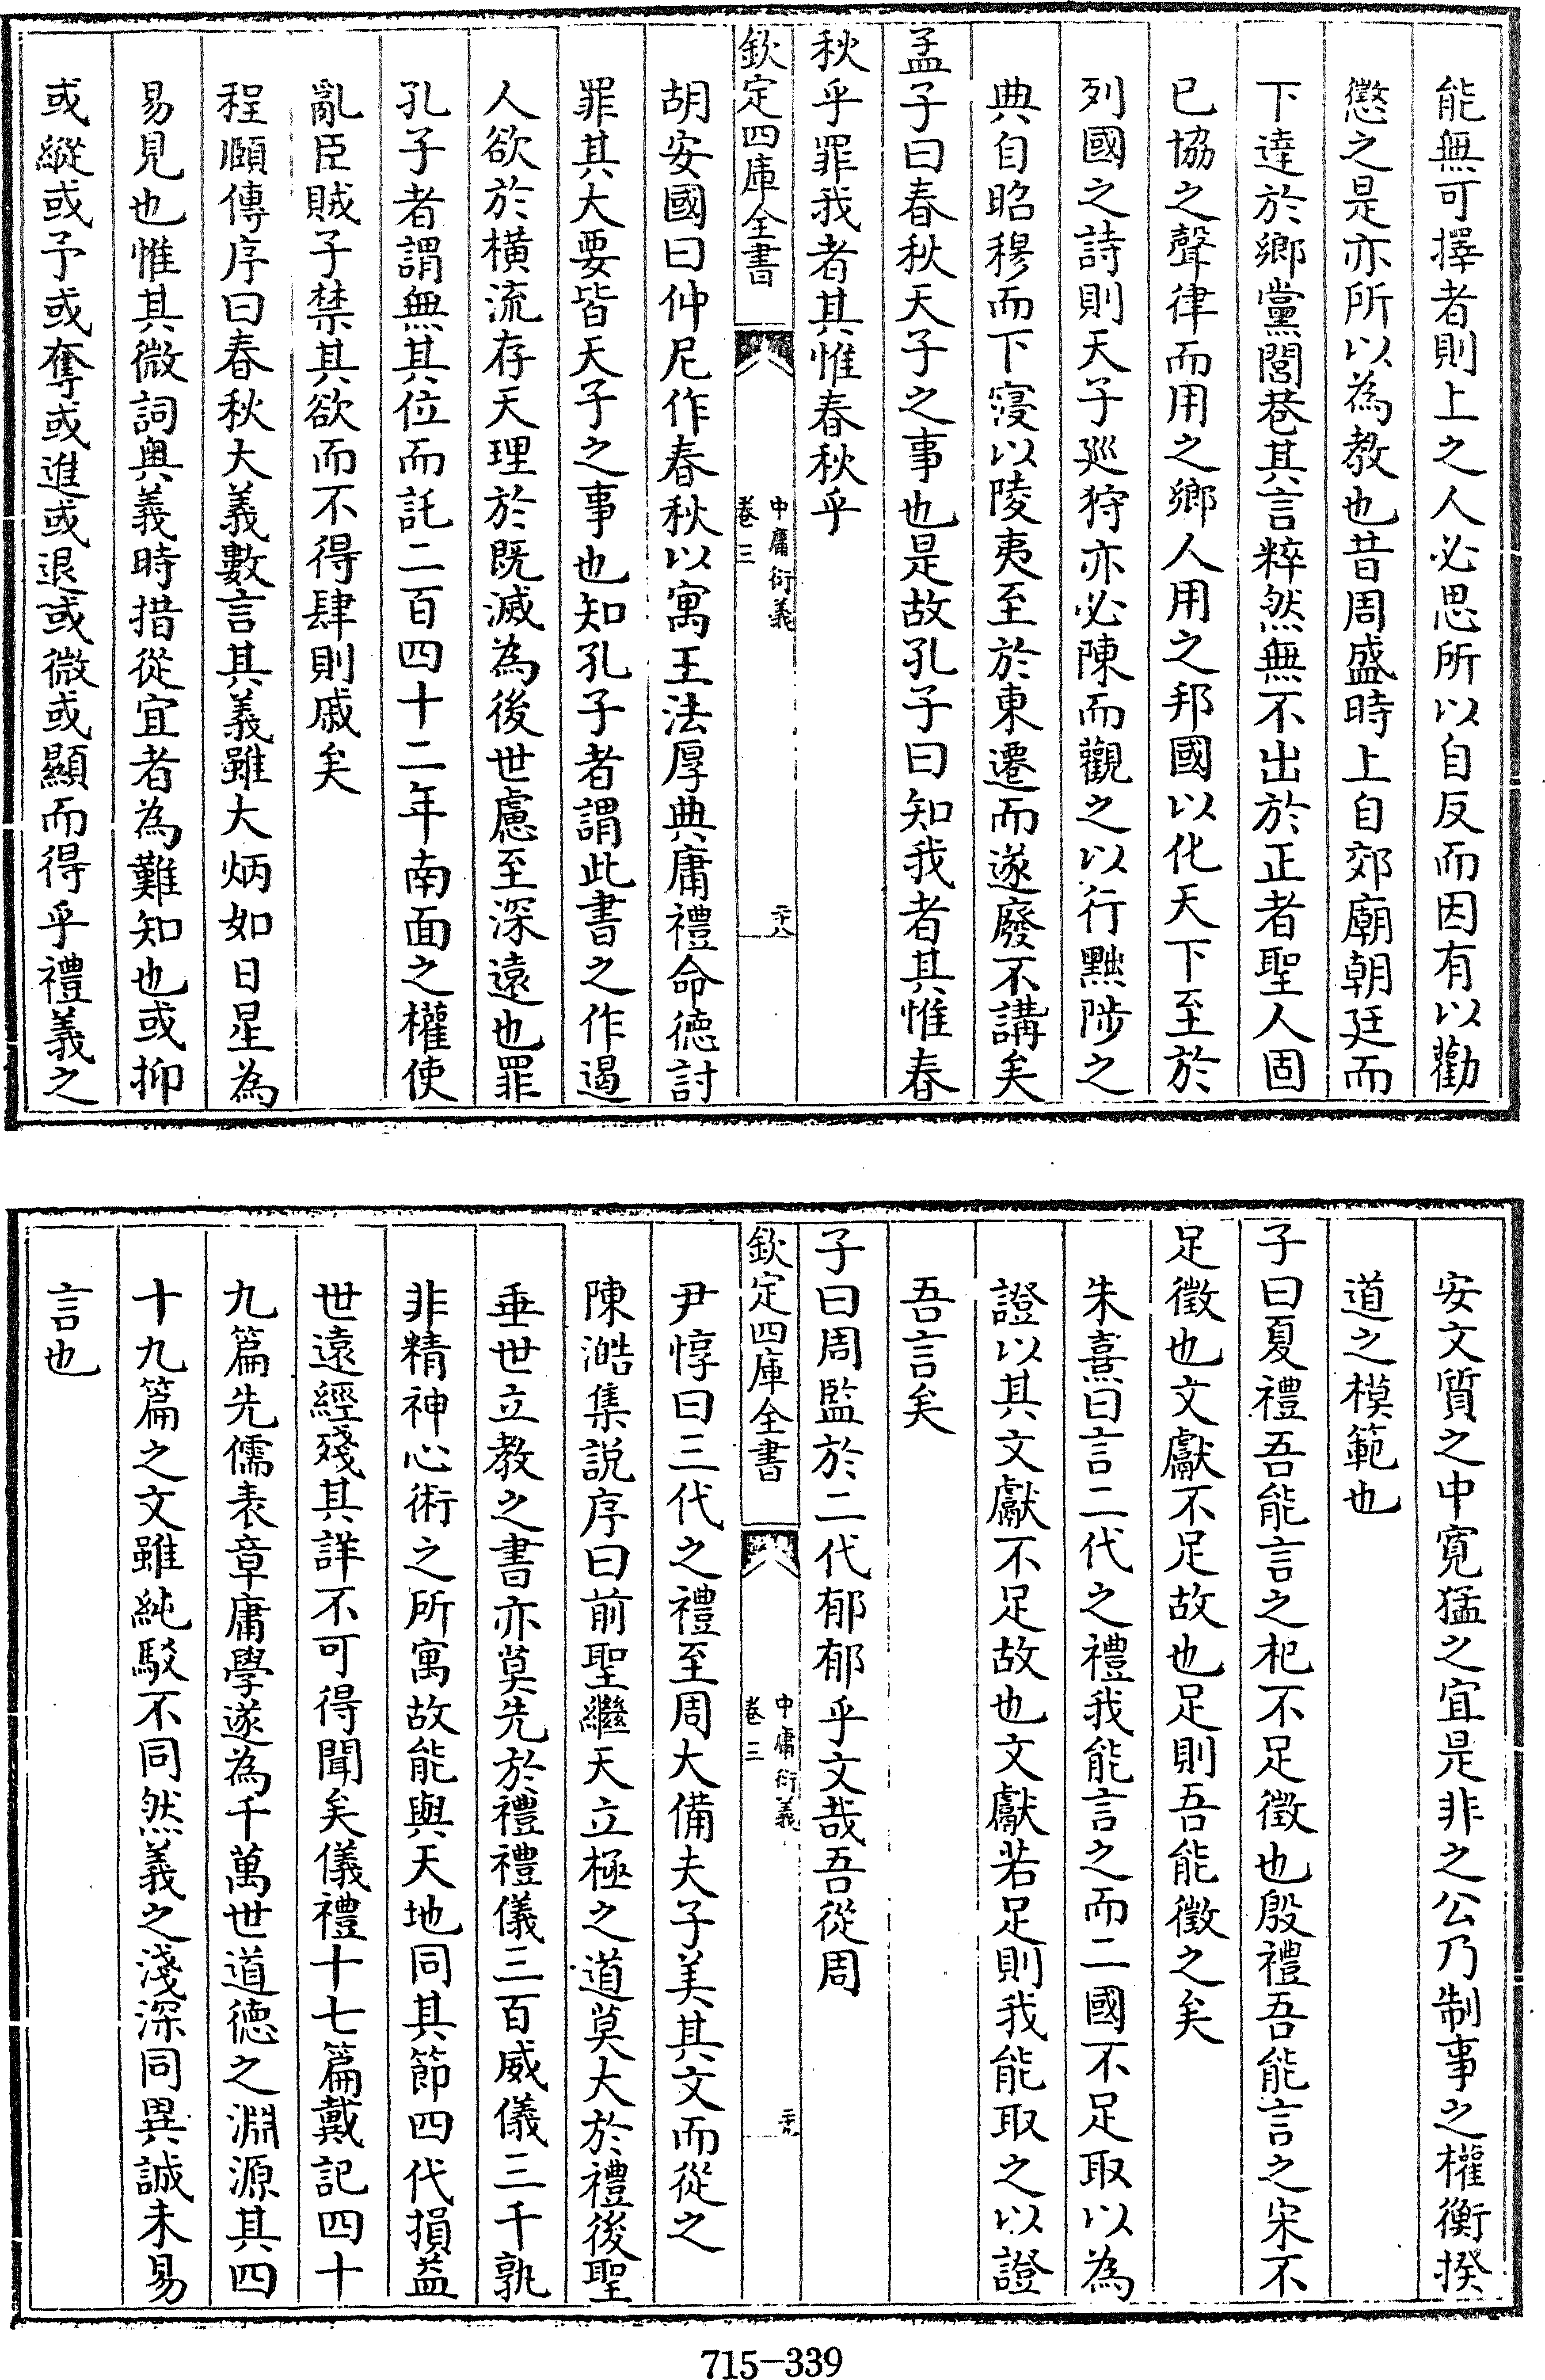 能無可擇者則上之人必思所以自反而因有以勸
懲之是亦所以為教也昔周盛時上自郊廟朝廷而
下達於鄉黨閭巷其言粹然無不出於正者聖人固
已協之聲律而用之鄉人用之邦國以化天下至於
列國之詩則天子廵狩亦必陳而觀之以行黜陟之
典自昭穆而下寖以陵夷至於東遷而遂廢不講矣
孟子曰春秋天子之事也是故孔子曰知我者其惟春
秋乎罪我者其惟春秋乎
欽定四庫全書
中庸衍義
卷三
二十八
胡安國曰仲尼作春秋以寓王法厚典庸禮命德討
罪其大要皆天子之事也知孔子者謂此書之作遏
人欲於橫流存天理於既滅為後世慮至深遠也罪
孔子者謂無其位而託二百四十二年南面之權使
亂臣賊子禁其欲而不得肆則戚矣
程頤傳序曰春秋大義數言其義雖大炳如日星為
易見也惟其微詞奧義時措從宜者為難知也或抑
或縱或予或奪或進或退或微或顯而得乎禮義之
安文質之中寛猛之宜是非之公乃制事之權衡揆
道之模範也
子曰夏禮吾能言之杞不足徵也殷禮吾能言之宋不
足徵也文獻不足故也足則吾能徵之矣
朱熹曰言二代之禮我能言之而二國不足取以為
證以其文獻不足故也文獻若足則我能取之以證
吾言矣
子曰周監於二代郁郁乎文哉吾從周
欽定四庫全書
中庸衍義
卷三
二十九
尹惇曰三代之禮至周大備夫子美其文而從之
陳澔集說序曰前聖繼天立極之道莫大於禮後聖
垂世立教之書亦莫先於禮禮儀三百威儀三千孰
非精神心術之所寓故能與天地同其節四代損益
世遠經殘其詳不可得聞矣儀禮十七篇戴記四十
九篇先儒表章庸學遂為千萬世道德之淵源其四
十九篇之文雖純駁不同然義之淺深同異誠未易
言也
715-339